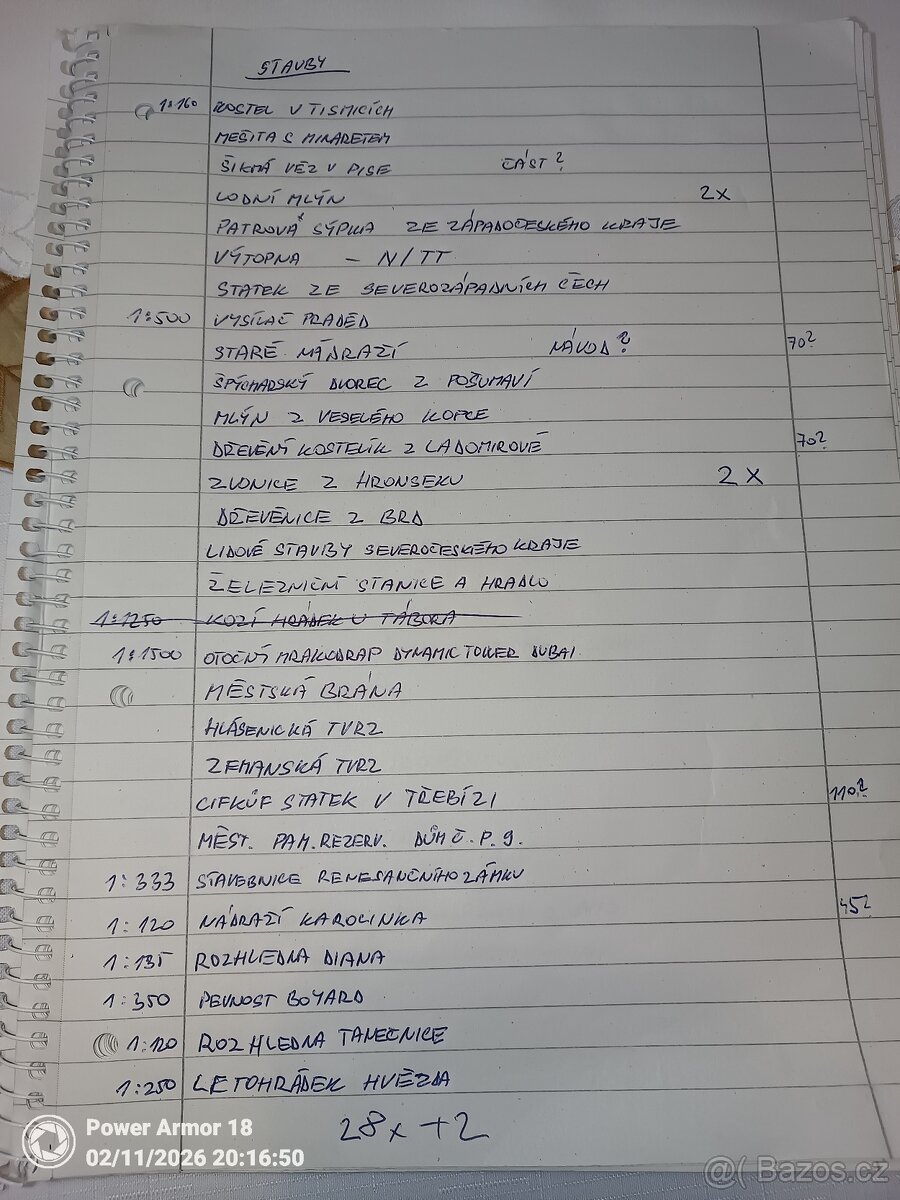 STAVBY
1:160 KOSTEL V TISMICÍCH
MEŠITA S MINARETEM
ŠIKMÁ VĚŽ V PISE ČÁST?
LODNÍ MLÝN 2x
PATROVÁ SÝPKA ZE ZÁPADOČESKÉHO KRAJE
VÝTOPNA - N/TT
STATEK ZE SEVEROZÁPADNÍCH ČECH
1:500 VYSÍLAČ PRADĚD
STARÉ NÁDRAŽÍ NÁVOD? 70?
ŠPÝCHARSKÝ DVOREC Z POŠUMAVÍ
MLÝN Z VESELÉHO KOPCE
DŘEVĚNÝ KOSTELÍK Z LADOMIROVÉ 70?
ZVONICE Z HRONSEKU 2X
DŘEVĚNICE Z BRD
LIDOVÉ STAVBY SEVEROČESKÉHO KRAJE
ŽELEZNIČNÍ STANICE A HRADLO
1:1250 KOZÍ HRÁDEK U TÁBORA
1:1500 OTOČNÝ MRAKODRAP DYNAMIC TOWER DUBAI
MĚSTSKÁ BRÁNA
HLÁSENICKÁ TVRZ
ZEMANSKÁ TVRZ
CIFKŮF STATEK V TŘEBÍZI 110?
MĚST. PAM. REZERV. DŮM Č.P. 9.
1:333 STAVEBNICE RENESANČNÍHO ZÁMKU
1:120 NÁDRAŽÍ KAROLINKA 45?
1:135 ROZHLEDNA DIANA
1:350 PEVNOST BOYARD
1:120 ROZHLEDNA TANEČNICE
1:250 LETOHRÁDEK HVĚZDA
28x +2
Power Armor 18
02/11/2026 20:16:50
@( Bazos.cz